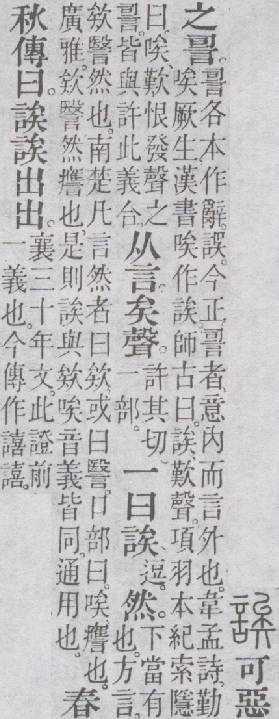 誒可惡
之䛐。䛐各本作辭。誤。今正。䛐者、意內而言外也。韋孟詩。勤
唉厥生。漢書唉作誒。師古曰。誒、歎聲。項羽本紀索隱
曰。唉、歎恨發聲之
䛐。皆與許此義合。从言。矣聲。許其切。
一部。一曰誒、逗。然。下當有
也。方言。
欸䃜然也。南楚凡言然者曰欸。或曰䃜。口部曰。唉、譍也。
廣雅。欸䃜然譍也。是則誒與欸唉音義皆同。通用也。春
秋傳曰。誒誒出出。襄三十年文。此證前
一義也。今傳作譆譆。